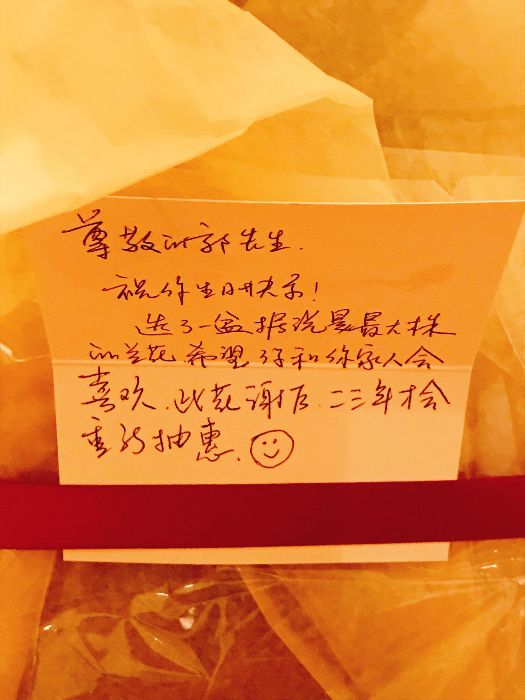 尊敬的郭先生.
祝你生日快乐!
送了一盆据说是最大株
的兰花希望你和你家人会
喜欢.此花谢后.二三年才会
重新抽惠.